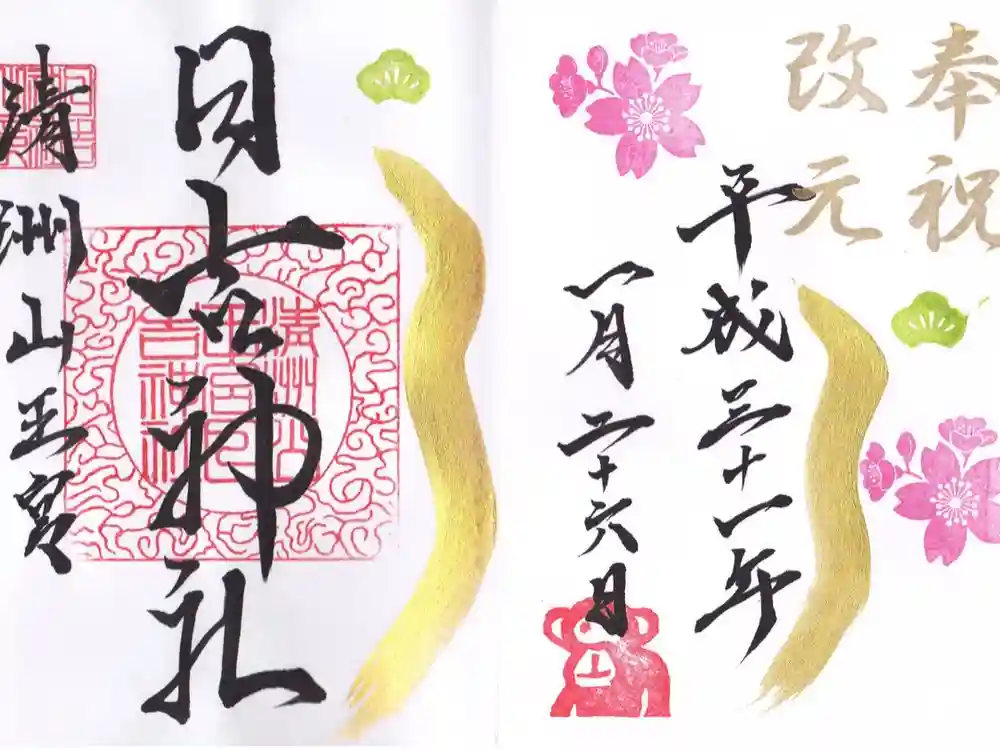 奉祝
改元
平成三十一年
一月二十六日
日吉神社
清州山
王宮日
吉神社
清洲山王宮